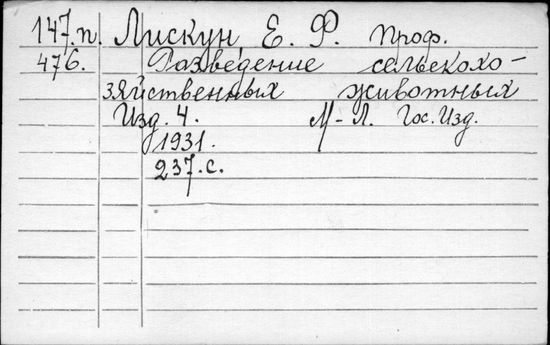 147.п. Лискун Е. Ф. проф.
476. Разведение сельскохо-
зяйственных животных
Изд. 4. М-Л. Гос. Изд.
1931.
237. с.